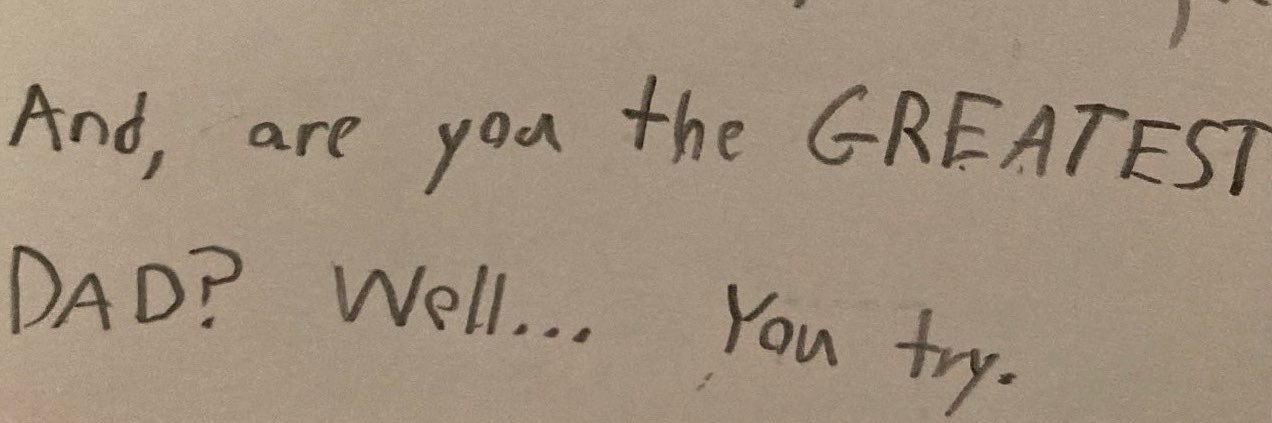 And, are you the GREATEST
DAD? Well... You try.